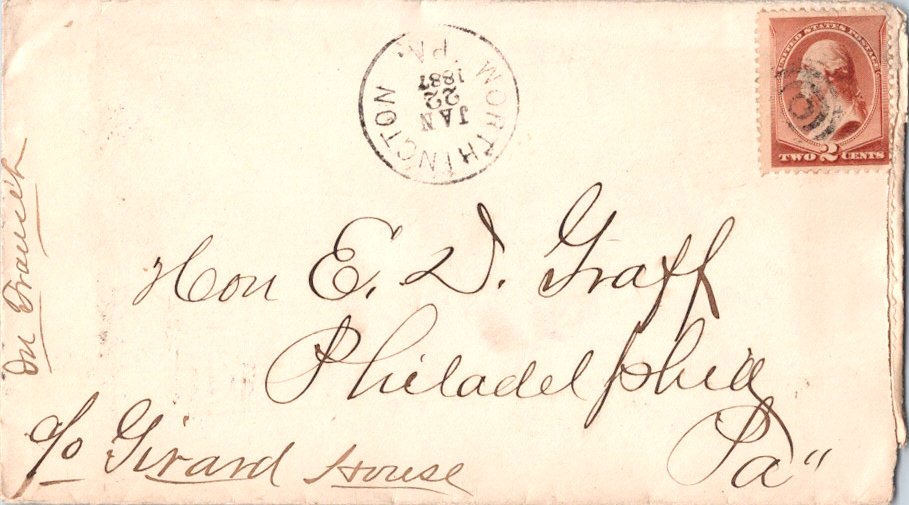 WORTHINGTON
PA.
JAN
22
1887
UNITED STATES POSTAGE
TWO 2 CENTS
Hon E. D. Graff
Philadelphia
Pa"
c/o Girard House
In Transit